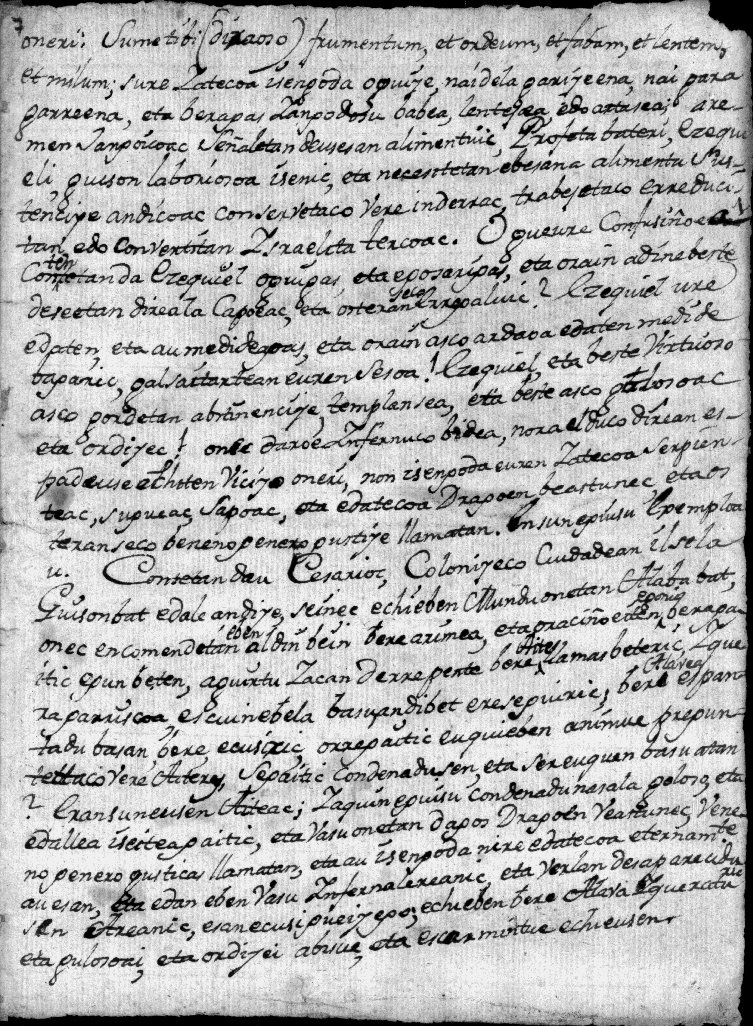 7
oneri: Sumetibi (diraoso) frumentum, et ordeum, et fabam, et lentem,
et milum; sure Zatecoa isenpoda oguiye, naidela gariyeena, nai gara
garreena, eta berapas Zanpodosu babea, lentejea, edo artasea; are-
men Sanpoucac Señaletan deusesan alimentuic, Profeta bateri, Ezequi
eli guison laboriosoa isenic, eta necesitetan ebesana alimentu
tenciye andicoac conservetaco vere inderrac, trabejetaco erreduci-
tan, edo convertitan Israelita tercoac. O gueure Confusiñoe
Contetan da Ezequiel oguipas, eta eposaripas, eta orain adinebeste
deseetan direala Capoeac, eta orteran seco Erregaliuic? Ezequiel ure
edaten, eta au medidegaas, eta orain asco ardaoa edaten medide
baparic, galsaitartean euren Sesoa! Ezequiel, eta beste virtuoso
asco gordetan abstinenciye, templansea, eta beste asco gulosoac
eta ordiyec! onec daroe Infernuco bidea, nora elduco direan es-
padeuse echiten viciyo oneri, non isenpoda euren Zatecoa Serpien-
teac, sugueac, Sapoac, eta edatecoa Dragoen beastunec eta os
teranseco beneno penero gustiye llamatan. Ensun eguisu Exemploa
u. Contetan dau Cesarioc, Coloniyeco Ciudadean il sela
Guison bat edale andiye, seinec echieben Munduonetan Alaba bat,
onec encomendetan eben aldiü bein bere arimea, eta graciño eiten egonig beraga
itic egun beten, aguirtu Zacan derrepente bere Aitea llamas beteric, Zque
ragarriscoa escuinebela basu andibet eresequiric; bere Alavea espan
tadu basan, bere ecusiric orregaitic euquieben animue pregun-
tetaco vere Aiterey, Segaitic condenadu sen, eta ser euquen basu atan
? Eransuneusen Aiteac; Zaquin eguisu condenadu nasala goloso, eta
edallea isiteagaitic, eta vasu onetan dagos Dragoen veastunec, vene
no genero gusticas llamatan, eta au isenpoda nire edatecoa eternamte
au esan, eta edan eben vasu Infernalereanic, eta verlan desaparecidu
sen Atreanic, esan ecusi gueiyego; echieben bere Alava Iqueratu ric
eta gulosoai, eta ordiyei abisue, eta escarmentue echieusen.